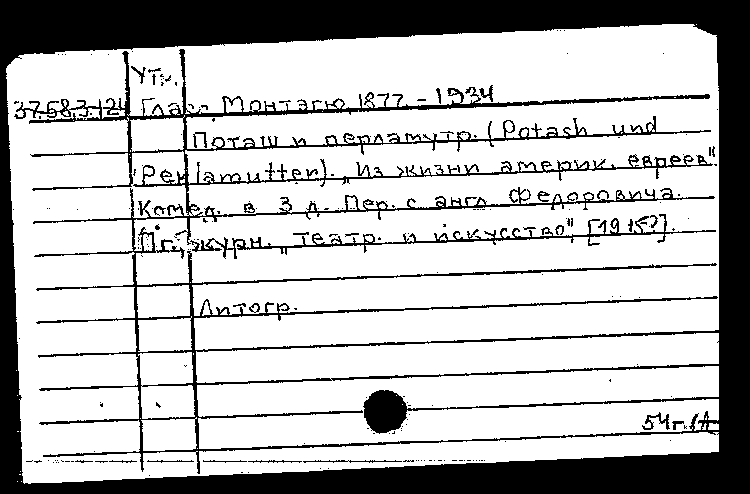 Утч.
37.58.3.124 Гласс, Монтагю, 1877 - 1934
Поташ и перламутр. (Potash und
Perlamutter). „Из жизни америк. евреев".
Комед. в 3 д. Пер. с англ Федоровича.
Пг., журн. „Театр и искусство", [1915?].
Литогр.
54г.